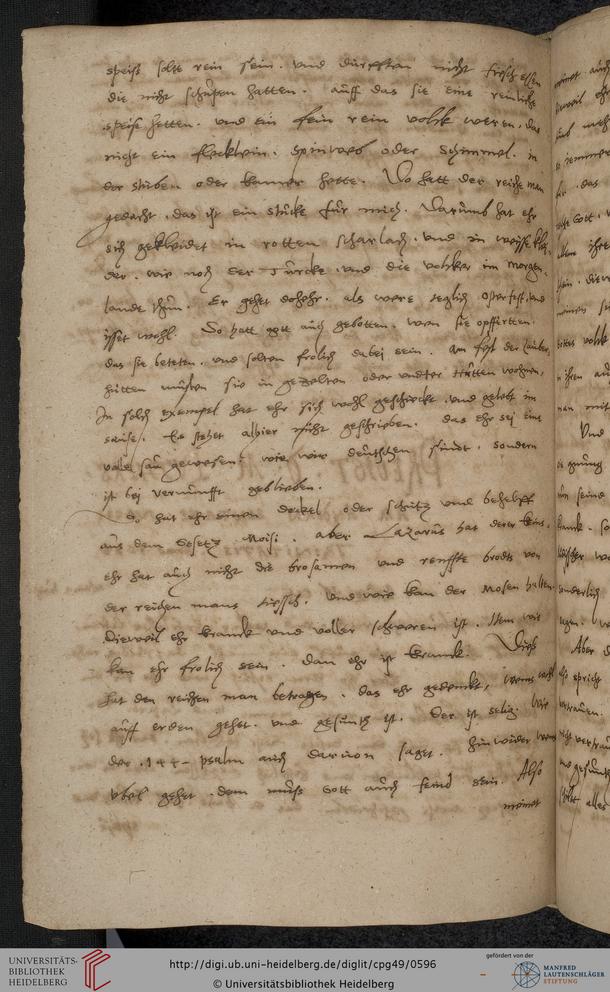 speiß solt rein sein. und durfften nicht fisch essen
die nicht schupen hatten. auff das sie eine reinliche
speise hetten. und ein fein rein volck weren. das
nicht ein flecklein. spinweb oder schimmel. in
der stuben oder kamer hette. Do hatt der reiche man
gedacht. das ist ein stucke fur mich. Darumb hat ehr
sich gekleidet in rotten scharlach. und in weisse klei-
der. wie noch der Turcke. und die volcker im morgen
lande thun. Er gehet doher. als were teglich Osterfest. und
isset wohl. So hatt gott auch gebotten. wen sie opfferten
das sie beteten. und solten frolich dabei sein. Am fest der lauber
hutten musten sie in gezelten oder undter Hutten wohnen,
In solch exempel hat ehr sich wohl geschickt. und gelebt im
sause. Es stehet alhier nicht geschrieben. das ehr sei eine
volle sau gewesen. wie wir deutschen sindt. sondern
ist bei vernunfft geblieben.
So hat ehr einen deckel oder schutz und behelff
aus dem Gesetz Mosi. aber Lazarus hat derer keins.
ehr hat auch nicht die brosamen und renffte brodts von
der reichen mans tissch. und wie kan der Mosen halten.
dieweil ehr kranck und voller schweren ist. Item wie
kan ehr frolich sein. dan ehr ist kranck. Dies
hat den reichen man betrogen. das ehr gedenckt, wems wohl
auff erden gehet. und gesundt ist. Der ist selig. Wie
der .144. psalm auch darvon saget. Hinwider wem
ubel gehet. dem mus Gott auch feind sein. Also
meinet
UNIVERSITÄTS-
BIBLIOTHEK
HEIDELBERG
http://digi.ub.uni-heidelberg.de/diglit/cpg49/0596
© Universitätsbibliothek Heidelberg
gefördert von der
MANFRED
LAUTENSCHLÄGER
STIFTUNG